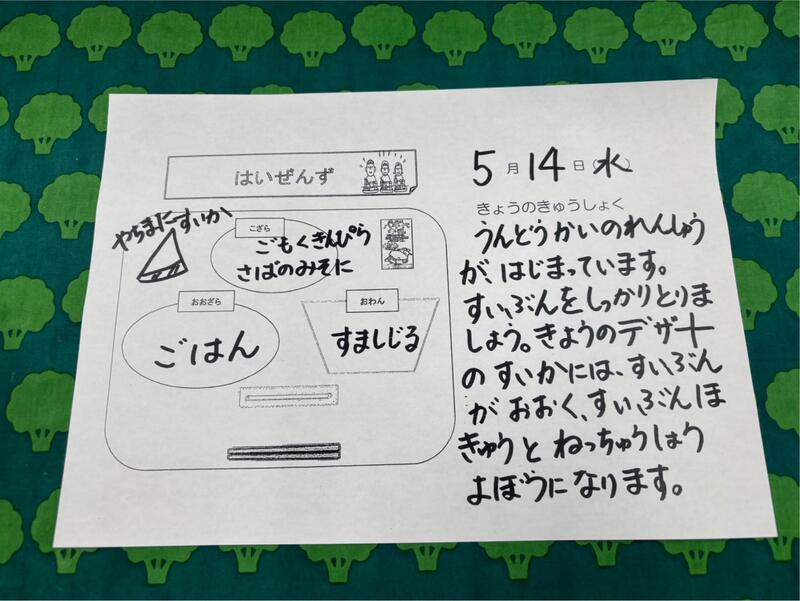 はいぜんず
やちまたすいか
こざら
ごもくきんぴら
さばのみそに
おおざら
ごはん
おわん
すましじる
5月14日(水)
きょうのきゅうしょく
うんどうかいのれんしゅう
が、はじまっています。
すいぶんをしっかりとりま
しょう。きょうのデザート
のすいかには、すいぶん
がおおく、すいぶんほ
きゅうとねっちゅうしょう
よぼうになります。